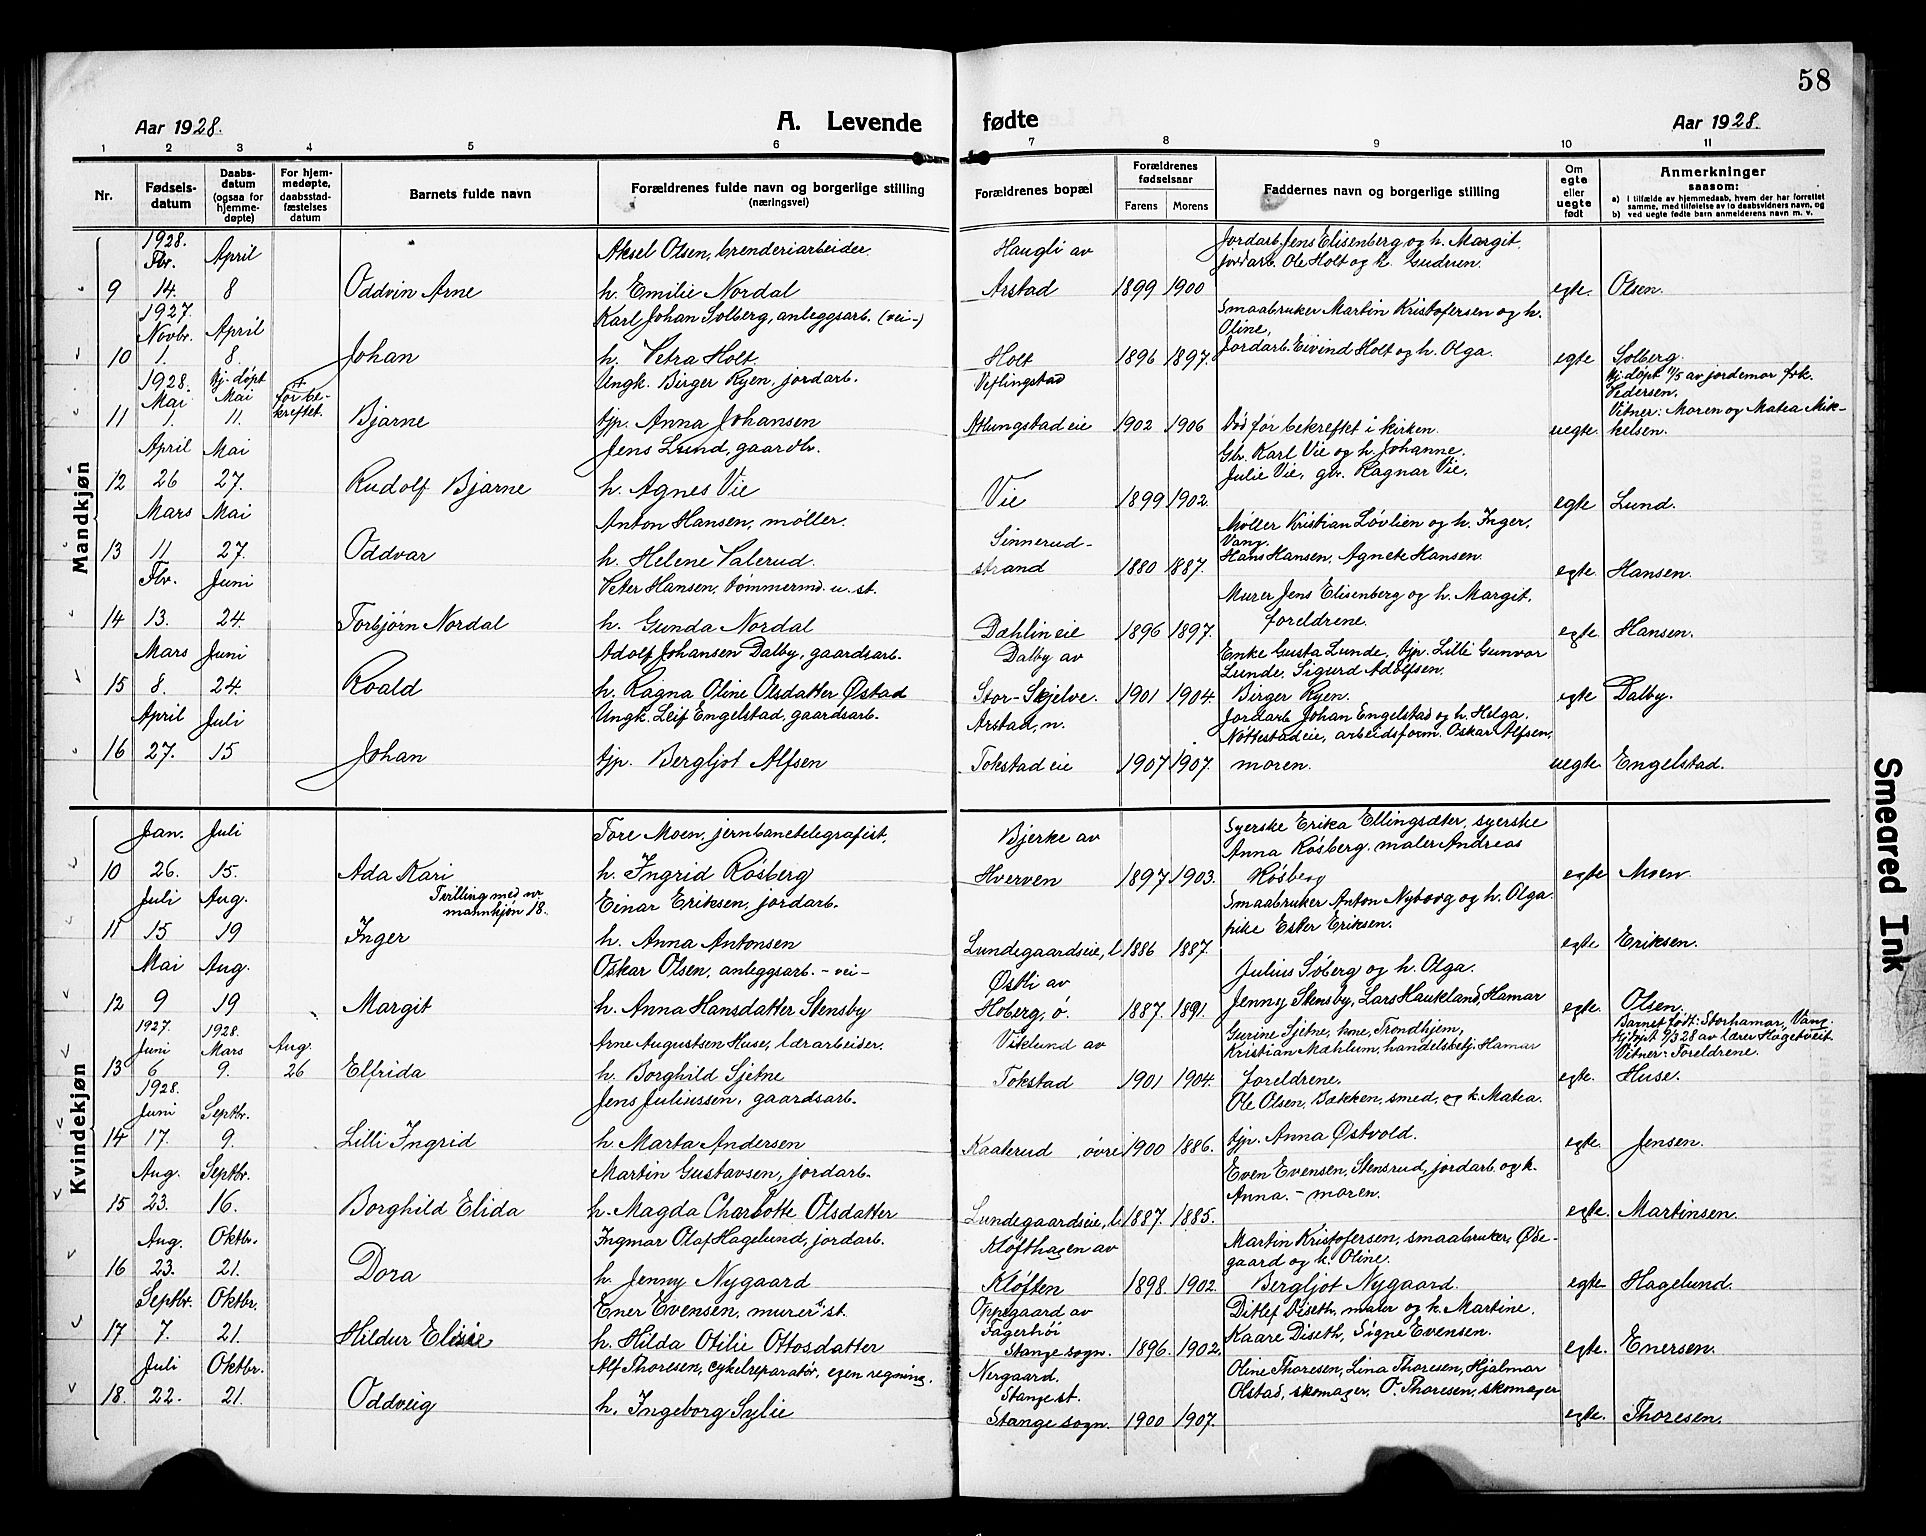 58
Aar 1928.
A. Levende
fødte
Aar 1928.
1 2 3 4 5 6 7 8 9 10 11
Nr.
Fødsels-datum
Daabs-datum (ogsaa for hjemme-døpte)
For hjem-medøpte, daabsstad-fæstelses datum
Barnets fulde navn
Forældrenes fulde navn og borgerlige stilling
(næringsvei)
Forældrenes bopæl
Forældrenes fødselsaar
Farens Morens
Faddernes navn og borgerlige stilling
Om egte eller uegte født
Anmerkninger
saasom:
a) I tilfælde av hjemmedaab, hvem der har forrettet samme, med tilføielse av to daabsvidners navn, og
b) ved uegte fødte barn anmelderens navn m. v.
Mandkjøn
1928. Fbr. April Aksel Olsen, brenderiarbeider. Haugli av Jordarb. Jens Elisenberg og h. Margit.
jordarb. Ole Holt og h. Gudrun.
9 14. 8 Oddvin Arne h. Emilie Nordal Arstad 1899 1900 egte. Olsen.
1927. Novbr. April Karl Johan Solberg, anleggsarb. (vei-) Smaabruker Martin Kristofersen og h.
Oline,
10 1. 8. Johan h. Petra Holt Holt 1896 1897. Jordarb. Eivind Holt og h. Olga. egte Solberg.
1928. Mai Hj. døpt Mai + før be-kreftet. Ungk. Birger Ryen, jordarb. Vestlingstad Hj. døpt 11/5 av jordemor frk.
Pedersen.
Vitner: Maren og Matea Mik-
11 1. 11. Bjarne tjp. Anna Johansen Atlungstad eie 1902 1906 Død før bekreftet i kirken. uegte. kelsen.
April Mai Jens Lund, gaardbr. Gbr. Karl Vie og h. Johanne.
Julie Vie, gbr. Ragnar Vie.
12 26 27. Rudolf Bjarne h. Agnes Vie Vie 1899 1902. egte Lund.
Mars Mai Anton Hansen, møller. Sinnerud- Møller Kristian Løvlien og h. Inger,
Vang.
13 11 27. Oddvar h. Helene Valerud. strand 1880 1887. Hans Hansen, Agnete Hansen. egte. Hansen.
Fbr. Juni Peter Hansen, tømmermd. u. st. Murer Jens Elisenberg og h. Margit.
14 13. 24. Torbjørn Nordal h. Gunda Nordal Dæhlin eie 1896 1897. foreldrene. egte. Hansen.
Mars Juni Adolf Johansen Dalby, gaardsarb. Dalby av Enke Gusta Lunde, tjp. Lilli Gunvor
Lunde, Sigurd Adolfsen.
15 8. 24. Roald h. Ragna Oline Olsdatter Østad Stor-Skjelve. 1901 1904. Birger Ryen. egte Dalby.
April Juli Ungk. Leif Engelstad, gaardsarb. Arstad, n. Jordarb. Johan Engelstad og h. Helga.
Nøttestad eie, arbeidsform. Oskar Alfsen,
16 27. 15 Johan tjp. Bergljot Alfsen Tokstad eie 1907 1907. moren. uegte. Engelstad.
Kvindekjøn
Jan. Juli Tore Moen, jernbanetelegrafist, Bjerke av Syerske Erika Ellingsæter, syerske
Anna Røsberg, maler Andreas
10 26. 15. Ada Kari h. Ingrid Røsberg Hverven 1897 1903. Røsberg egte Moen
Juli Aug. Tvilling med nr mannkjøn 18. Einar Eriksen, jordarb. Smaabruker Anton Nyborg og h. Olga.
pike Ester Eriksen.
11 15 19 Inger h. Anna Antonsen Lundegaardseie, l. 1886 1887. egte Eriksen.
Mai Aug. Oskar Olsen, anleggsarb. -vei- Østli av Julius Søberg og h. Olga.
12 9 19 Margit h. Anna Hansdatter Stensby Hoberg, ø. 1887. 1891. Jenny Stensby, Lars Haukland, Hamar egte. Olsen.
1927. Juni 1928. Mars Aug. Arne Augustsen Huse, lærarbeider. Viklund av Gurine Sjetne, kone, Trondhjem, Barnet født: Storhamar, Vang.
Kristian Mæhlum, handelsbetj. Hamar Hj. døpt 9/3 28 av lærer Hagetveit.
Vitner: Foreldrene.
13 6 9. 26 Elfrida h. Borghild Sjetne Tokstad 1901 1904. foreldrene. egte. Huse.
1928. Juni Septbr. Jens Juliussen, gaardsarb. Ole Olsen, Bækken, smed, og k. Matea.
14 17. 9. Lilli Ingrid h. Marta Andersen Kaaterud øvre 1900 1886. tjp. Anna Østvold. egte. Jensen.
Aug. Septbr. Martin Gustavsen, jordarb. Even Evensen, Stensrud, jordarb. og k.
Anna. - moren.
15 23. 16. Borghild Elida h. Magda Charlotte Olsdatter Lundegaardseie, l. 1887. 1885. egte. Martinsen.
Aug. Oktbr. Ingmar Olaf Hagelund, jordarb. Kløfthagen av Martin Kristofersen, smaabruker, Øde-
gaard og k. Oline.
16 23. 21. Dora h. Jenny Nygaard Kløften 1898. 1902. Bergljot Nygaard. egte Hagelund.
Septbr. Oktbr. Ener Evensen, murersv. st. Oppegaard av Ditlef Diseth, maler og k. Martine.
Fagerhøi
17 7. 21. Hildur Elisie h. Hilda Otilie Ottosdatter Stange sogn. 1896. 1902. Kaare Diseth, Signe Evensen. egte. Enersen.
Juli Oktbr. Alf Thoresen, cykelreparatør, egen regning. Nergaard. Oline Thoresen, Lina Thoresen, Hjalmar
Stange st. Olstad, skomager, O. Thoresen, skomager
18. 22. 21. Oddveig h. Ingeborg Sylie Stange sogn. 1900 1907. egte. Thoresen.
Smeared Ink